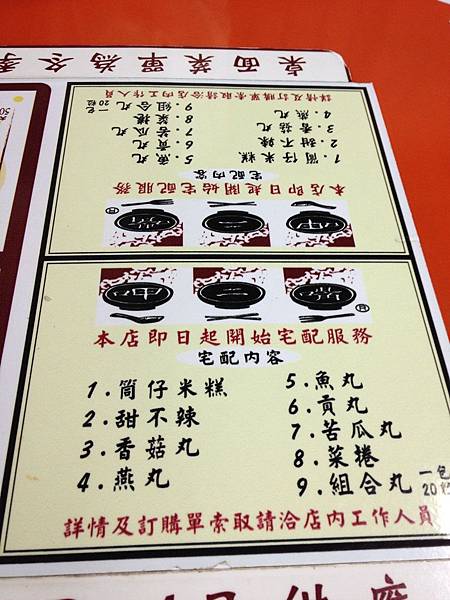 桌面菜單為冬季
詳情及訂購單索取請洽店內工作人員
1.筒仔米糕
2.甜不辣
3.香菇丸
4.燕丸
5.魚丸
6.貢丸
7.苦瓜丸
8.菜捲
9.組合丸 一包20粒
宅配內容
本店即日起開始宅配服務
本店即日起開始宅配服務
宅配內容
1.筒仔米糕
2.甜不辣
3.香菇丸
4.燕丸
5.魚丸
6.貢丸
7.苦瓜丸
8.菜捲
9.組合丸 一包20粒
詳情及訂購單索取請洽店內工作人員